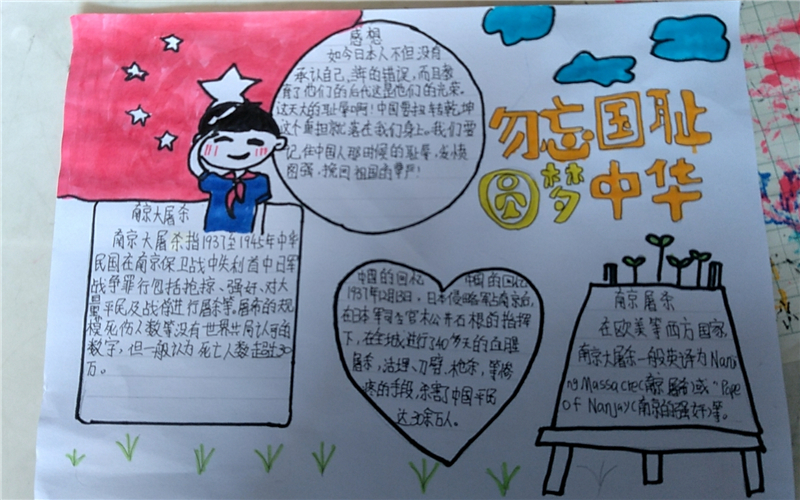 感想
如今日本人不但没有
承认自己的错误，而且教
育了他们的后代这是他们的光荣。
这天大的耻辱啊！中国要扭转乾坤
这个重担就落在我们身上。我们要
记住中国人那时候的耻辱，发愤
图强，挽回祖国的尊严！
勿忘国耻
圆梦中华
南京大屠杀
南京大屠杀指1937至1945年中华
民国在南京保卫战中失利首中日军
战争罪行包括抢掠、强奸、对大
量平民及战俘进行屠杀等。屠杀的规
模死伤人数等没有世界共同认可的
数字，但一般认为死亡人数超过30
万。
中国的回忆 中国的回忆
1937年12月13日，日本侵略军占南京后，
在日本军司令官松井石根的指挥
下，在当地进行了40多天的血腥
屠杀，活埋、刀劈、枪杀，等惨
疼的手段，杀害了中国平民
达30余万人。
南京屠杀
在欧美等西方国家，
南京大屠杀一般英译为Nanji
ng Massacrec(南京屠杀)或“Rape
of Nanjayc(南京的强奸)等。